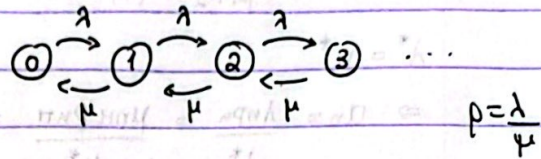 λ λ λ
0 1 2 3 ...
μ μ μ
ρ = λ/μ